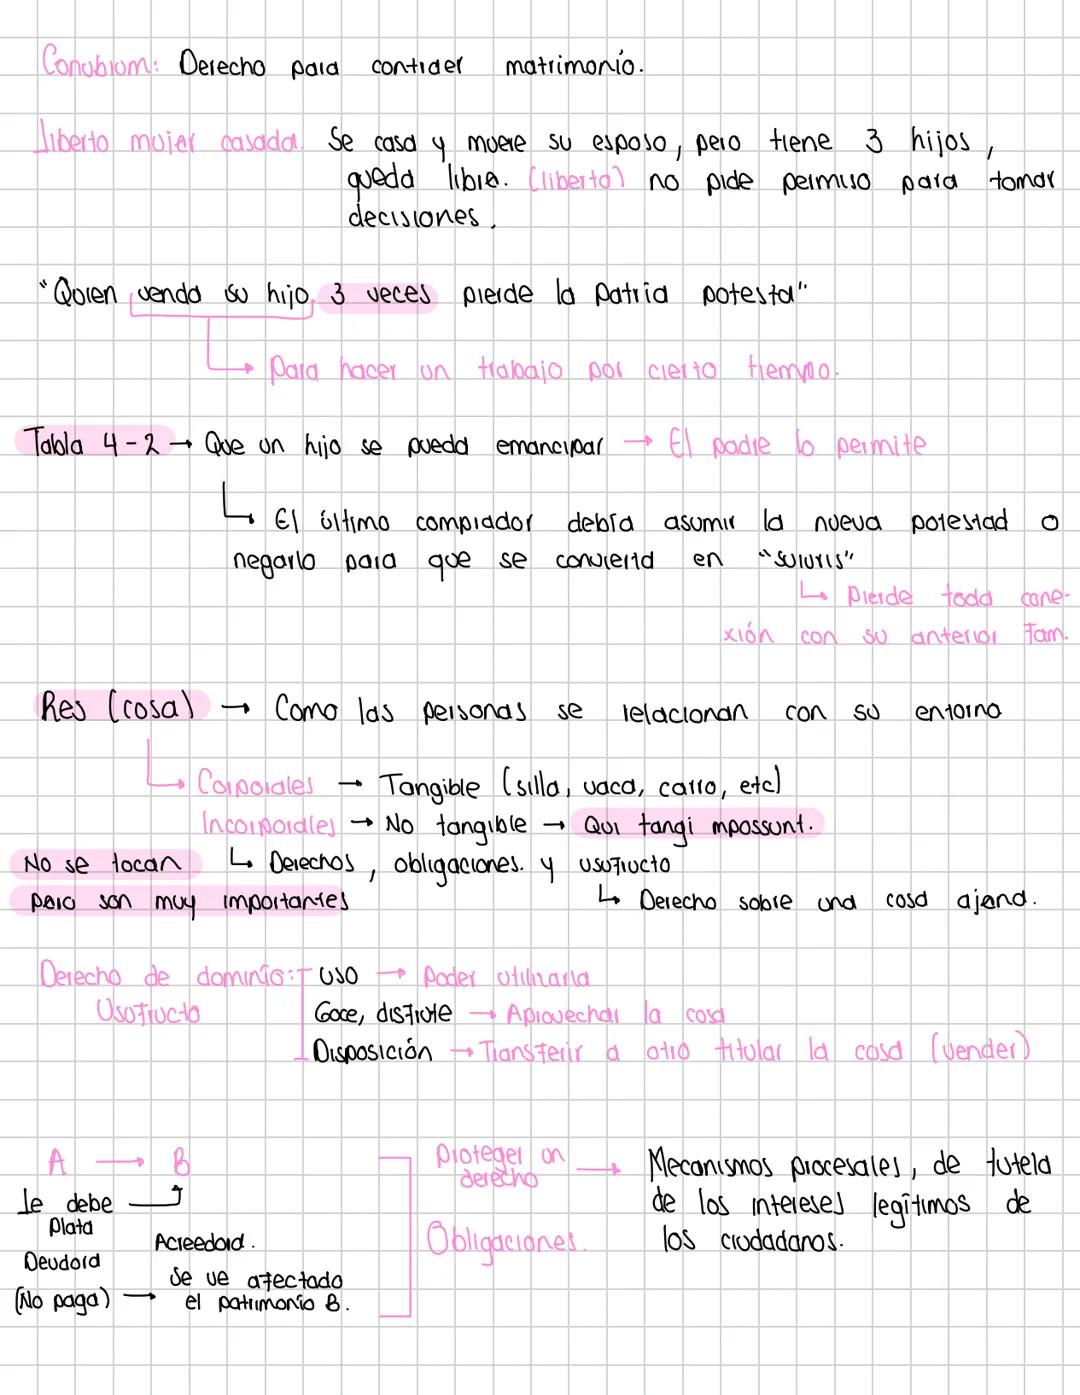 Conubium: Derecho para contraer matrimonio.
Liberto mujer casada. Se casa y muere su esposo, pero tiene 3 hijos,
queda libre. (liberta) no pide permiso para tomar
decisiones.
"Quien venda su hijo 3 veces pierde la Patria potesta"
↳ Para hacer un trabajo por cierto tiempo.
Tabla 4-2 → Que un hijo se pueda emancipar → El padre lo permite
↳ El último comprador debía asumir la nueva potestad o
negarlo para que se convierta en "suiuris"
↳ Pierde toda cone-
xión con su anterior fam.
Res (cosa) → Como las personas se relacionan con su entorno
↳ Corporales → Tangible (silla, vaca, carro, etc)
Incorporales → No tangible → Qui tangi mpossunt.
No se tocan ↳ Derechos, obligaciones. y usufructo
pero son muy importantes ↳ Derecho sobre una cosa ajena.
Derecho de dominio: uso → Poder utilizarla
Usufructo Goce, disfrute → Aprovechar la cosa
Disposición → Transferir a otro titular la cosa (vender)
A → B Proteger un → Mecanismos procesales, de tutela
derecho
le debe de los intereses legítimos de
Plata Acreedora. Obligaciones. los ciudadanos.
Deudora
Se ve afectado
(No paga) → el patrimonio B.